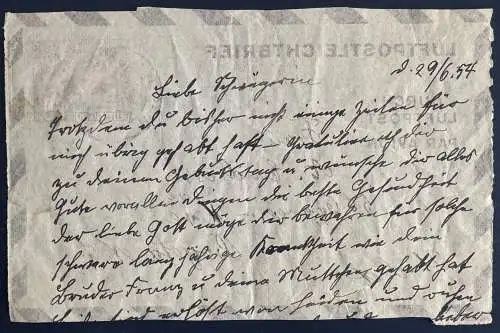 LUFTPOSTLEICHTBRIEF
d. 29/6.54
Liebe Schwägerin
Trotzdem du bisher nicht einige Zeilen für
mich übrig gehabt hast gratuliere ich dir
zu deinem Geburtstag u wünsche dir alles
Gute vor allen Dingen die beste Gesundheit
der liebe Gott möge dir bewahren für solche
schwere langjährige Krankheit wie dein
Bruder Franz u deine Mutter gehabt hat
sind erlöst von und ruhen